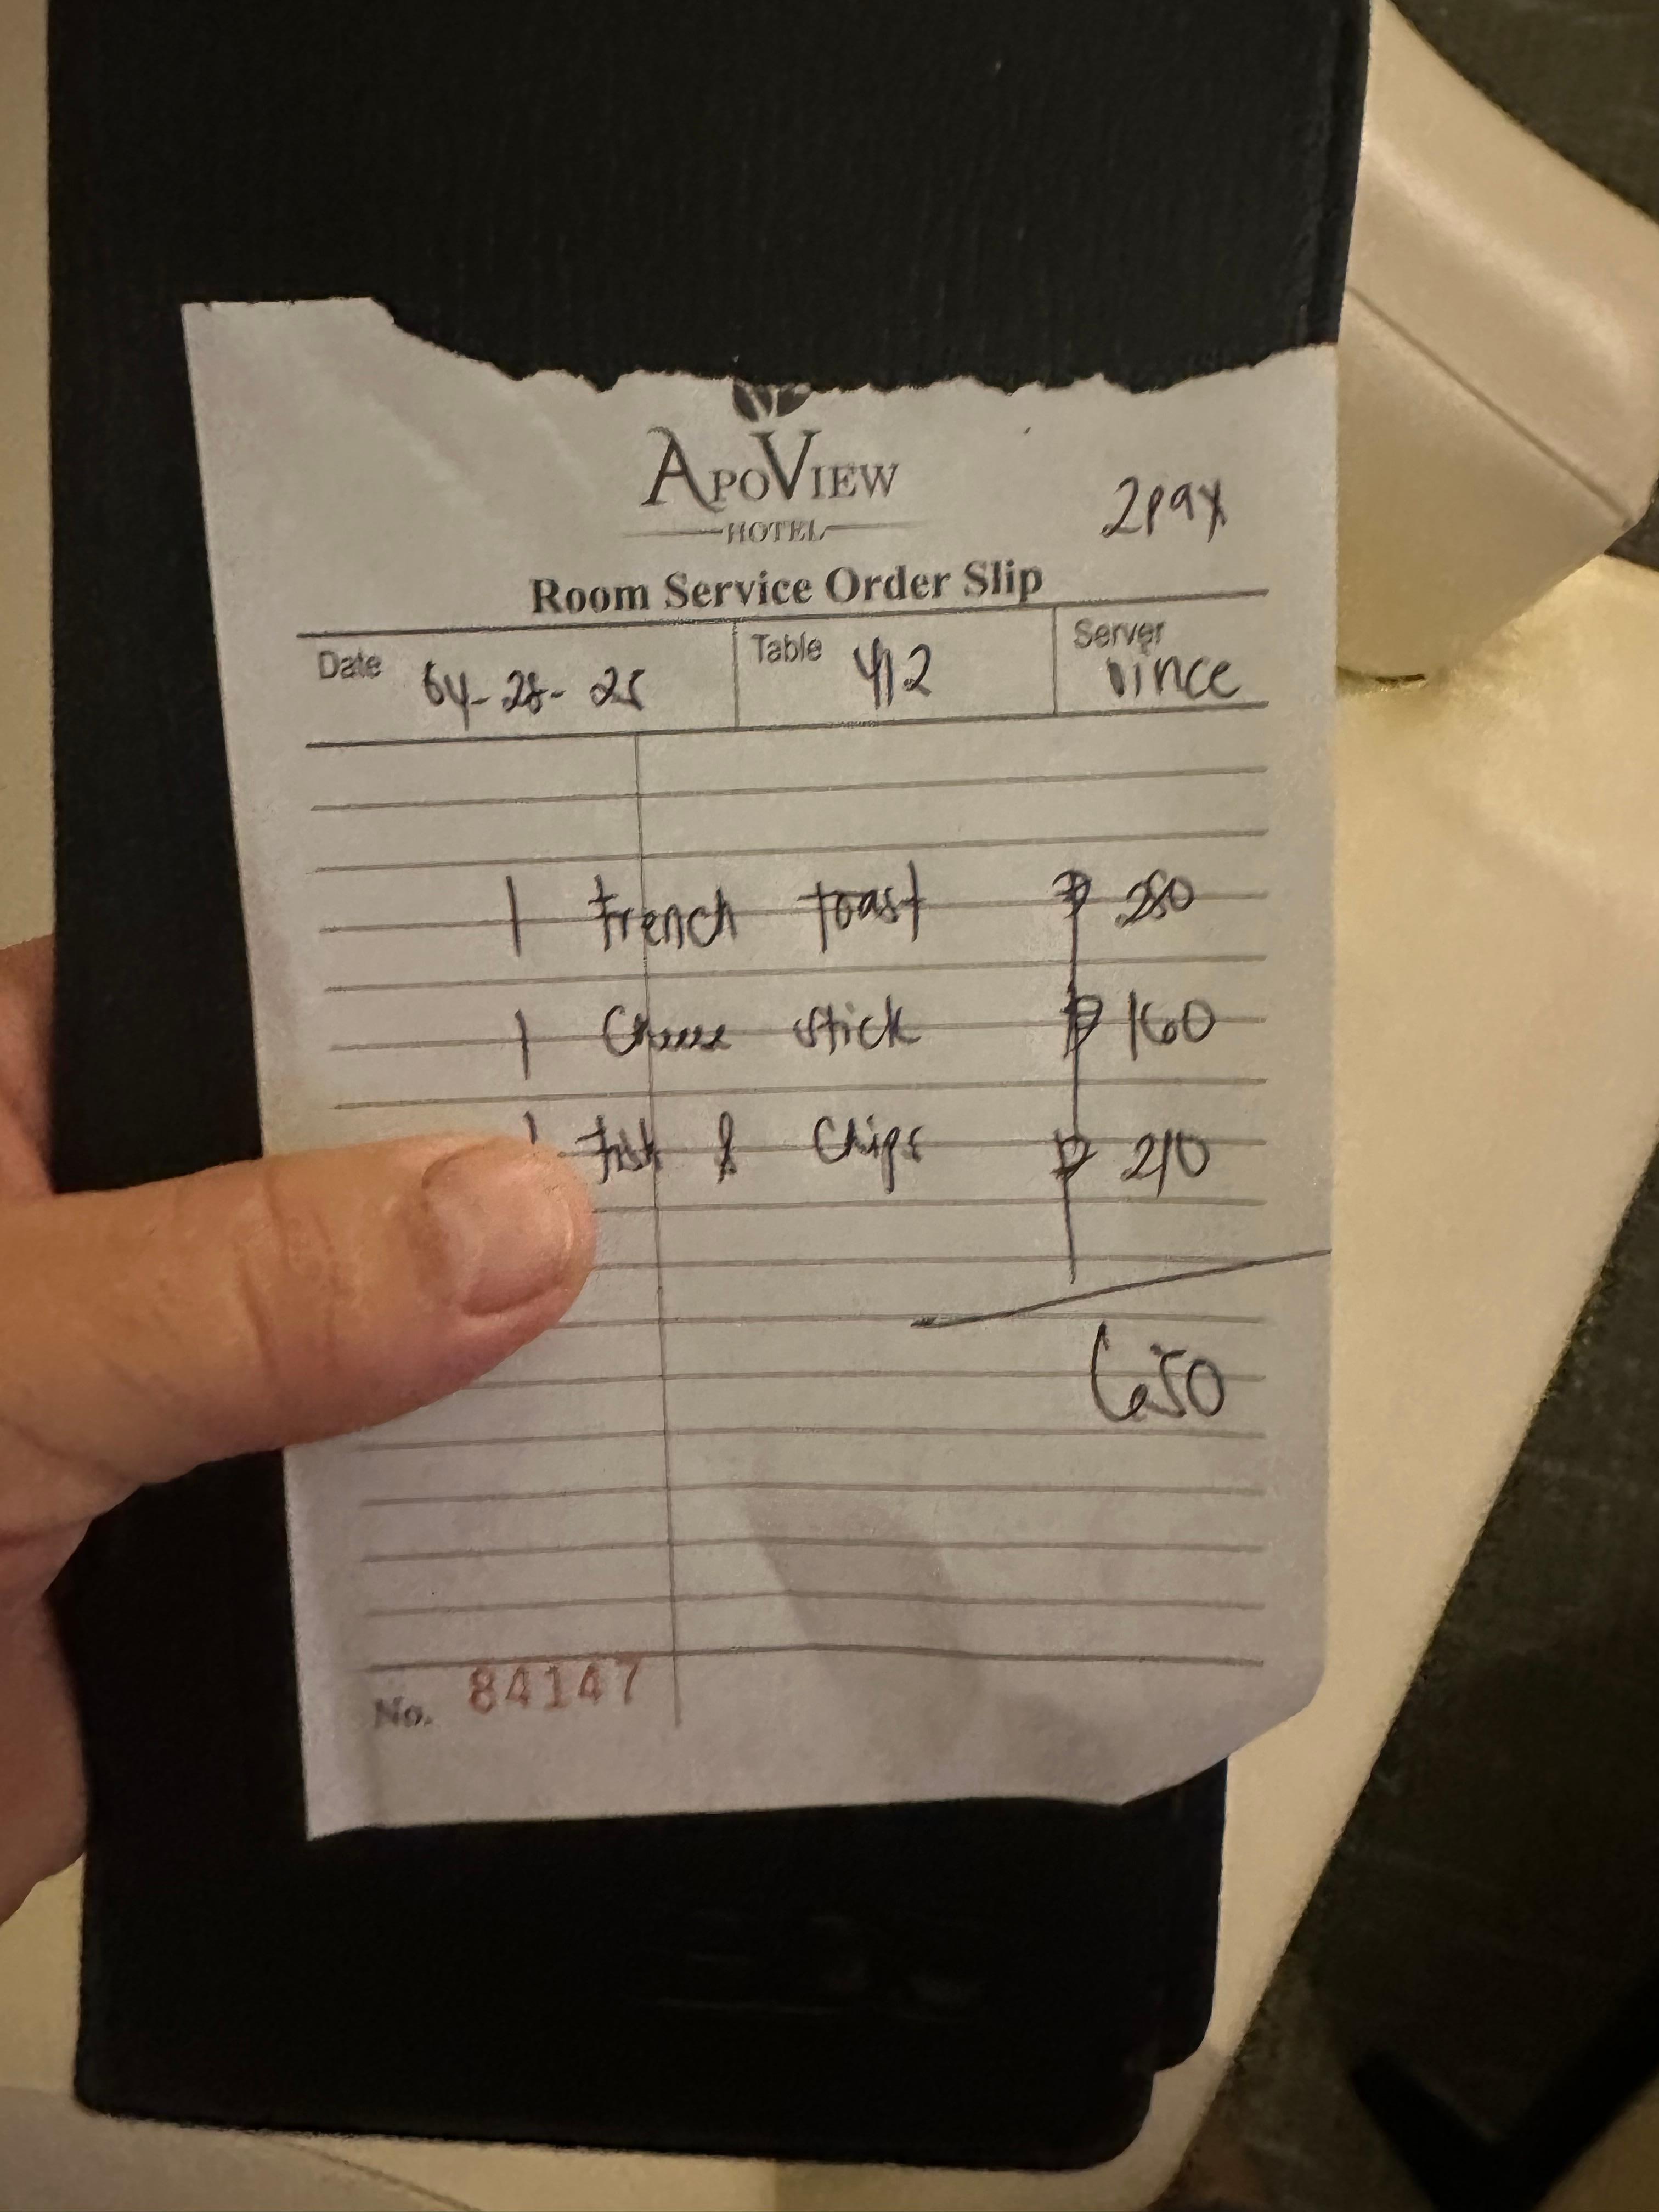 APOVIEW
HOTEL
2pax
Room Service Order Slip
Date 04-28-25 Table 412 Server Vince
1 French toast ₱ 280
1 Cheese stick ₱ 160
1 Fish & Chips ₱ 210
650
No. 84147